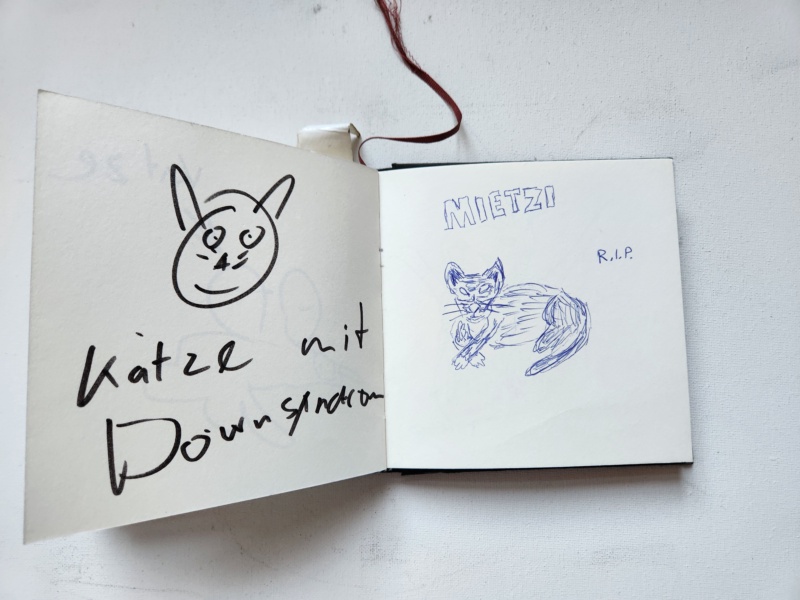 Katze mit
Downsyndrom
MIETZI
R.I.P.